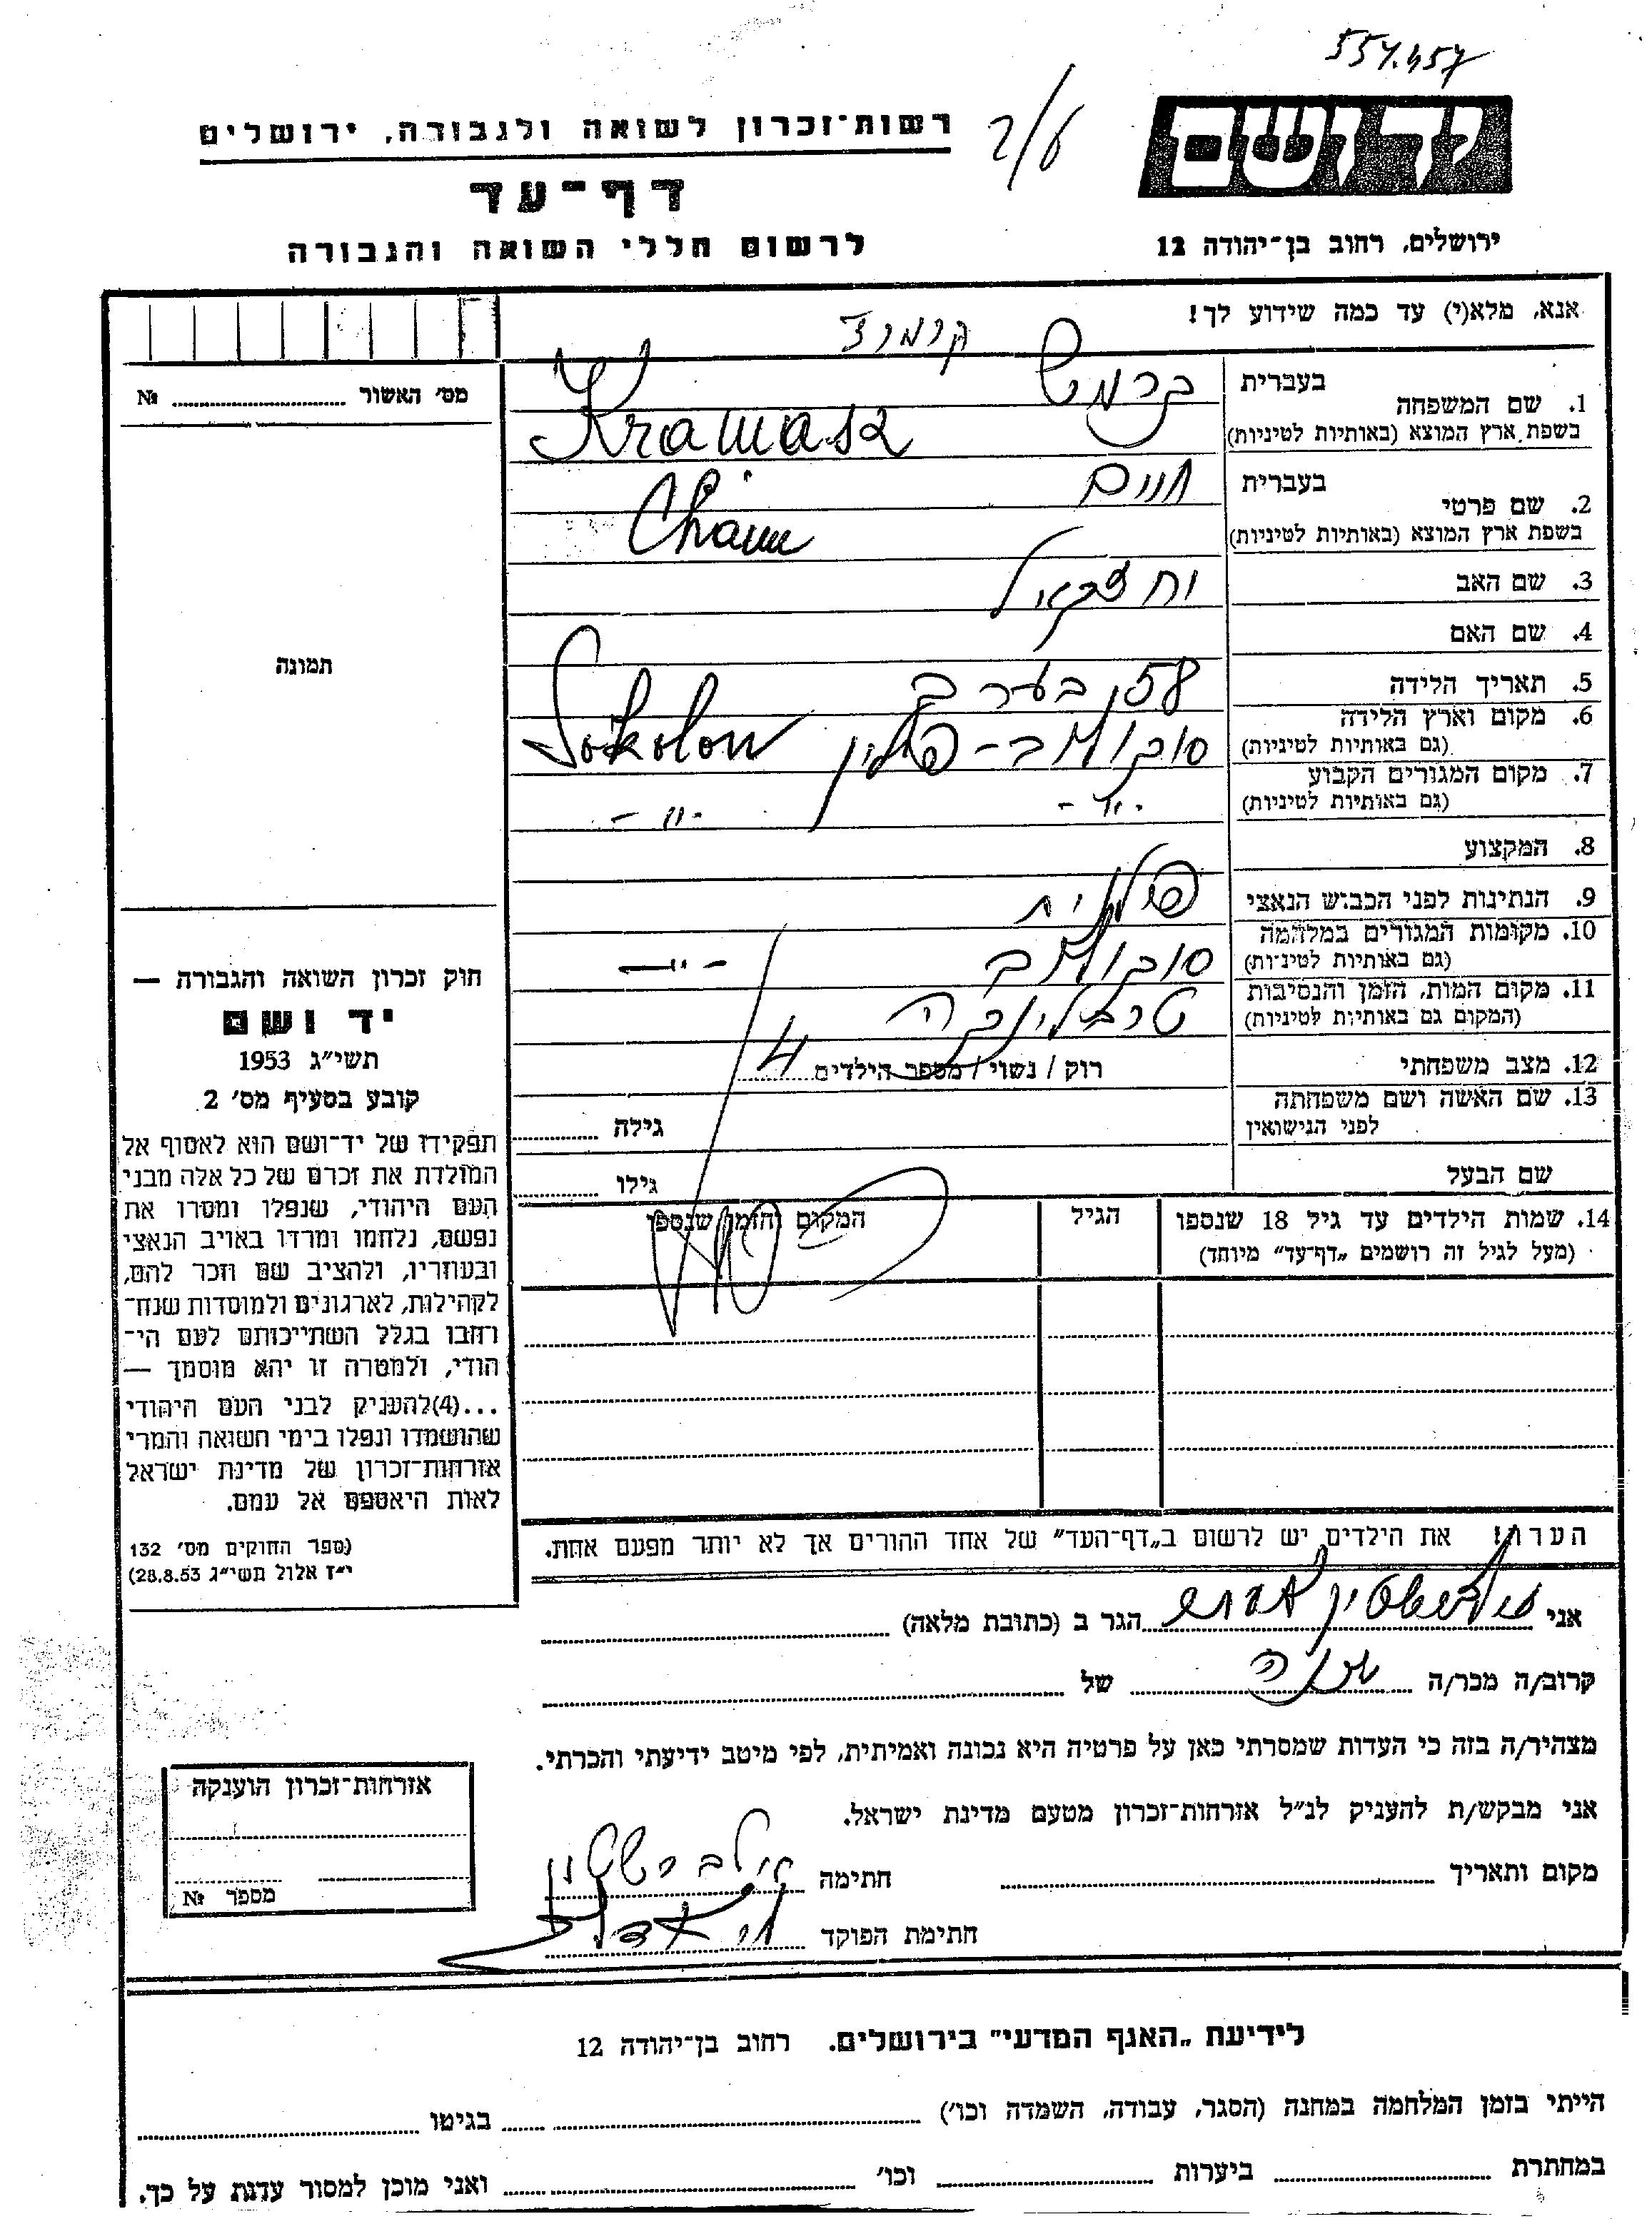 557.457
ידושם
רשות־זכרון לשואה ולגבורה, ירושלים
דף־עד
לרשום חללי השואה והגבורה
ירושלים, רחוב בן־יהודה 12
אנא, מלא(י) עד כמה שידוע לך!
מס׳ האשור № 
תמונה
1. שם המשפחה בעברית קרמש
בשפת ארץ המוצא (באותיות לטיניות) Kramasz
2. שם פרטי בעברית חיים
בשפת ארץ המוצא (באותיות לטיניות) Chaim
3. שם האב יחזקאל
4. שם האם
5. תאריך הלידה 58 בערך
6. מקום וארץ הלידה סוקולוב - פולין Sokolow
(גם באותיות לטיניות)
7. מקום המגורים הקבוע -״- -״-
(גם באותיות לטיניות)
8. המקצוע
9. הנתינות לפני הכבוש הנאצי פולנית
10. מקומות המגורים במלחמה סוקולוב -״-
(גם באותיות לטיניות)
11. מקום המות, הזמן והנסיבות טרבלינקה
(המקום גם באותיות לטיניות)
12. מצב משפחתי רוק / נשוי / מספר הילדים 4
13. שם האשה ושם משפחתה גילה
לפני הנישואין
שם הבעל גילו
14. שמות הילדים עד גיל 18 שנספו הגיל המקום והזמן שנספו
(מעל לגיל זה רושמים „דף־עד״ מיוחד)
חוק זכרון השואה והגבורה —
יד ושם
תשי״ג 1953
קובע בסעיף מס׳ 2
תפקידו של יד־ושם הוא לאסוף אל
המולדת את זכרם של כל אלה מבני
העם היהודי, שנפלו ומסרו את
נפשם, נלחמו ומרדו באויב הנאצי
ובעוזריו, ולהציב שם וזכר להם,
לקהילות, לארגונים ולמוסדות שנח־
רחבו בגלל השתייכותם לעם הי־
הודי, ולמטרה זו יהא מוסמך —
...(4)להעניק לבני העם היהודי
שהושמדו ונפלו בימי השואה והמרי
אזרחות־זכרון של מדינת ישראל
לאות היאספם אל עמם.
(ספר החוקים מס׳ 132
י״ז אלול תשי״ג 28.8.53)
הערה! את הילדים יש לרשום ב„דף־העד״ של אחד ההורים אך לא יותר מפעם אחת.
אני הגר ב (כתובת מלאה)
קרוב/ה מכר/ה של
מצהיר/ה בזה כי העדות שמסרתי כאן על פרטיה היא נכונה ואמיתית, לפי מיטב ידיעתי והכרתי.
אני מבקש/ת להעניק לנ״ל אזרחות־זכרון מטעם מדינת ישראל.
מקום ותאריך חתימה
חתימת הפוקד
אזרחות־זכרון הוענקה
מספר №
לידיעת „האנף המדעי״ בירושלים. רחוב בן־יהודה 12
הייתי בזמן המלחמה במחנה (הסגר, עבודה, השמדה וכו׳) בגיטו
במחתרת ביערות וכו׳ ואני מוכן למסור עדות על כך.